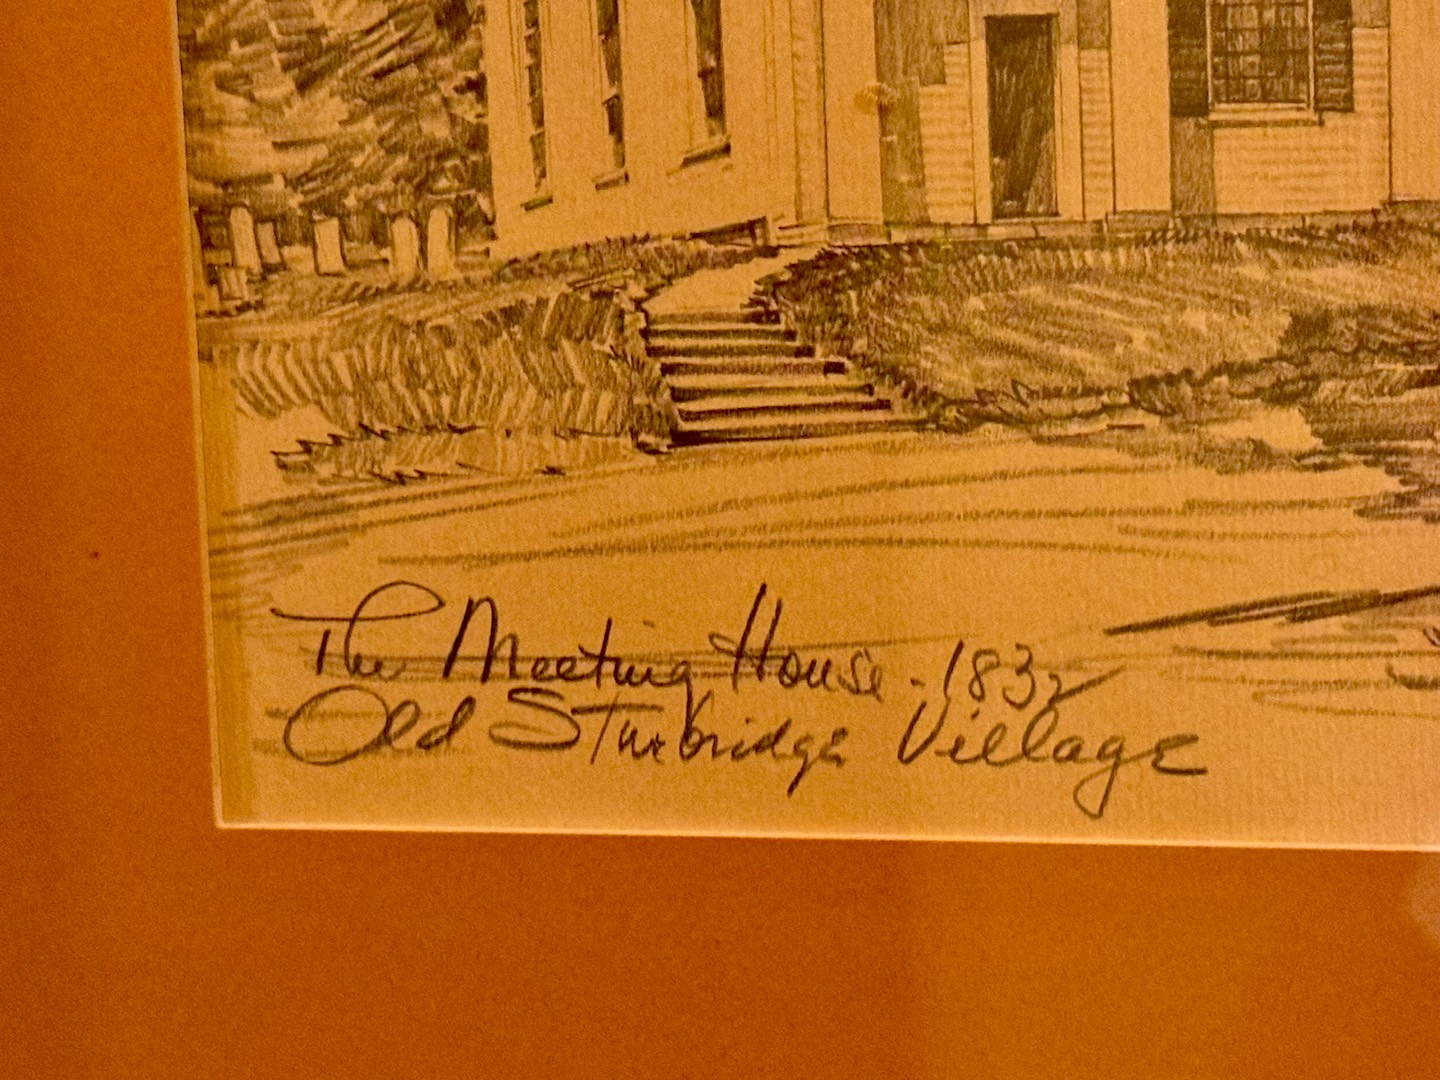 The Meeting House - 1832
Old Sturbridge Village